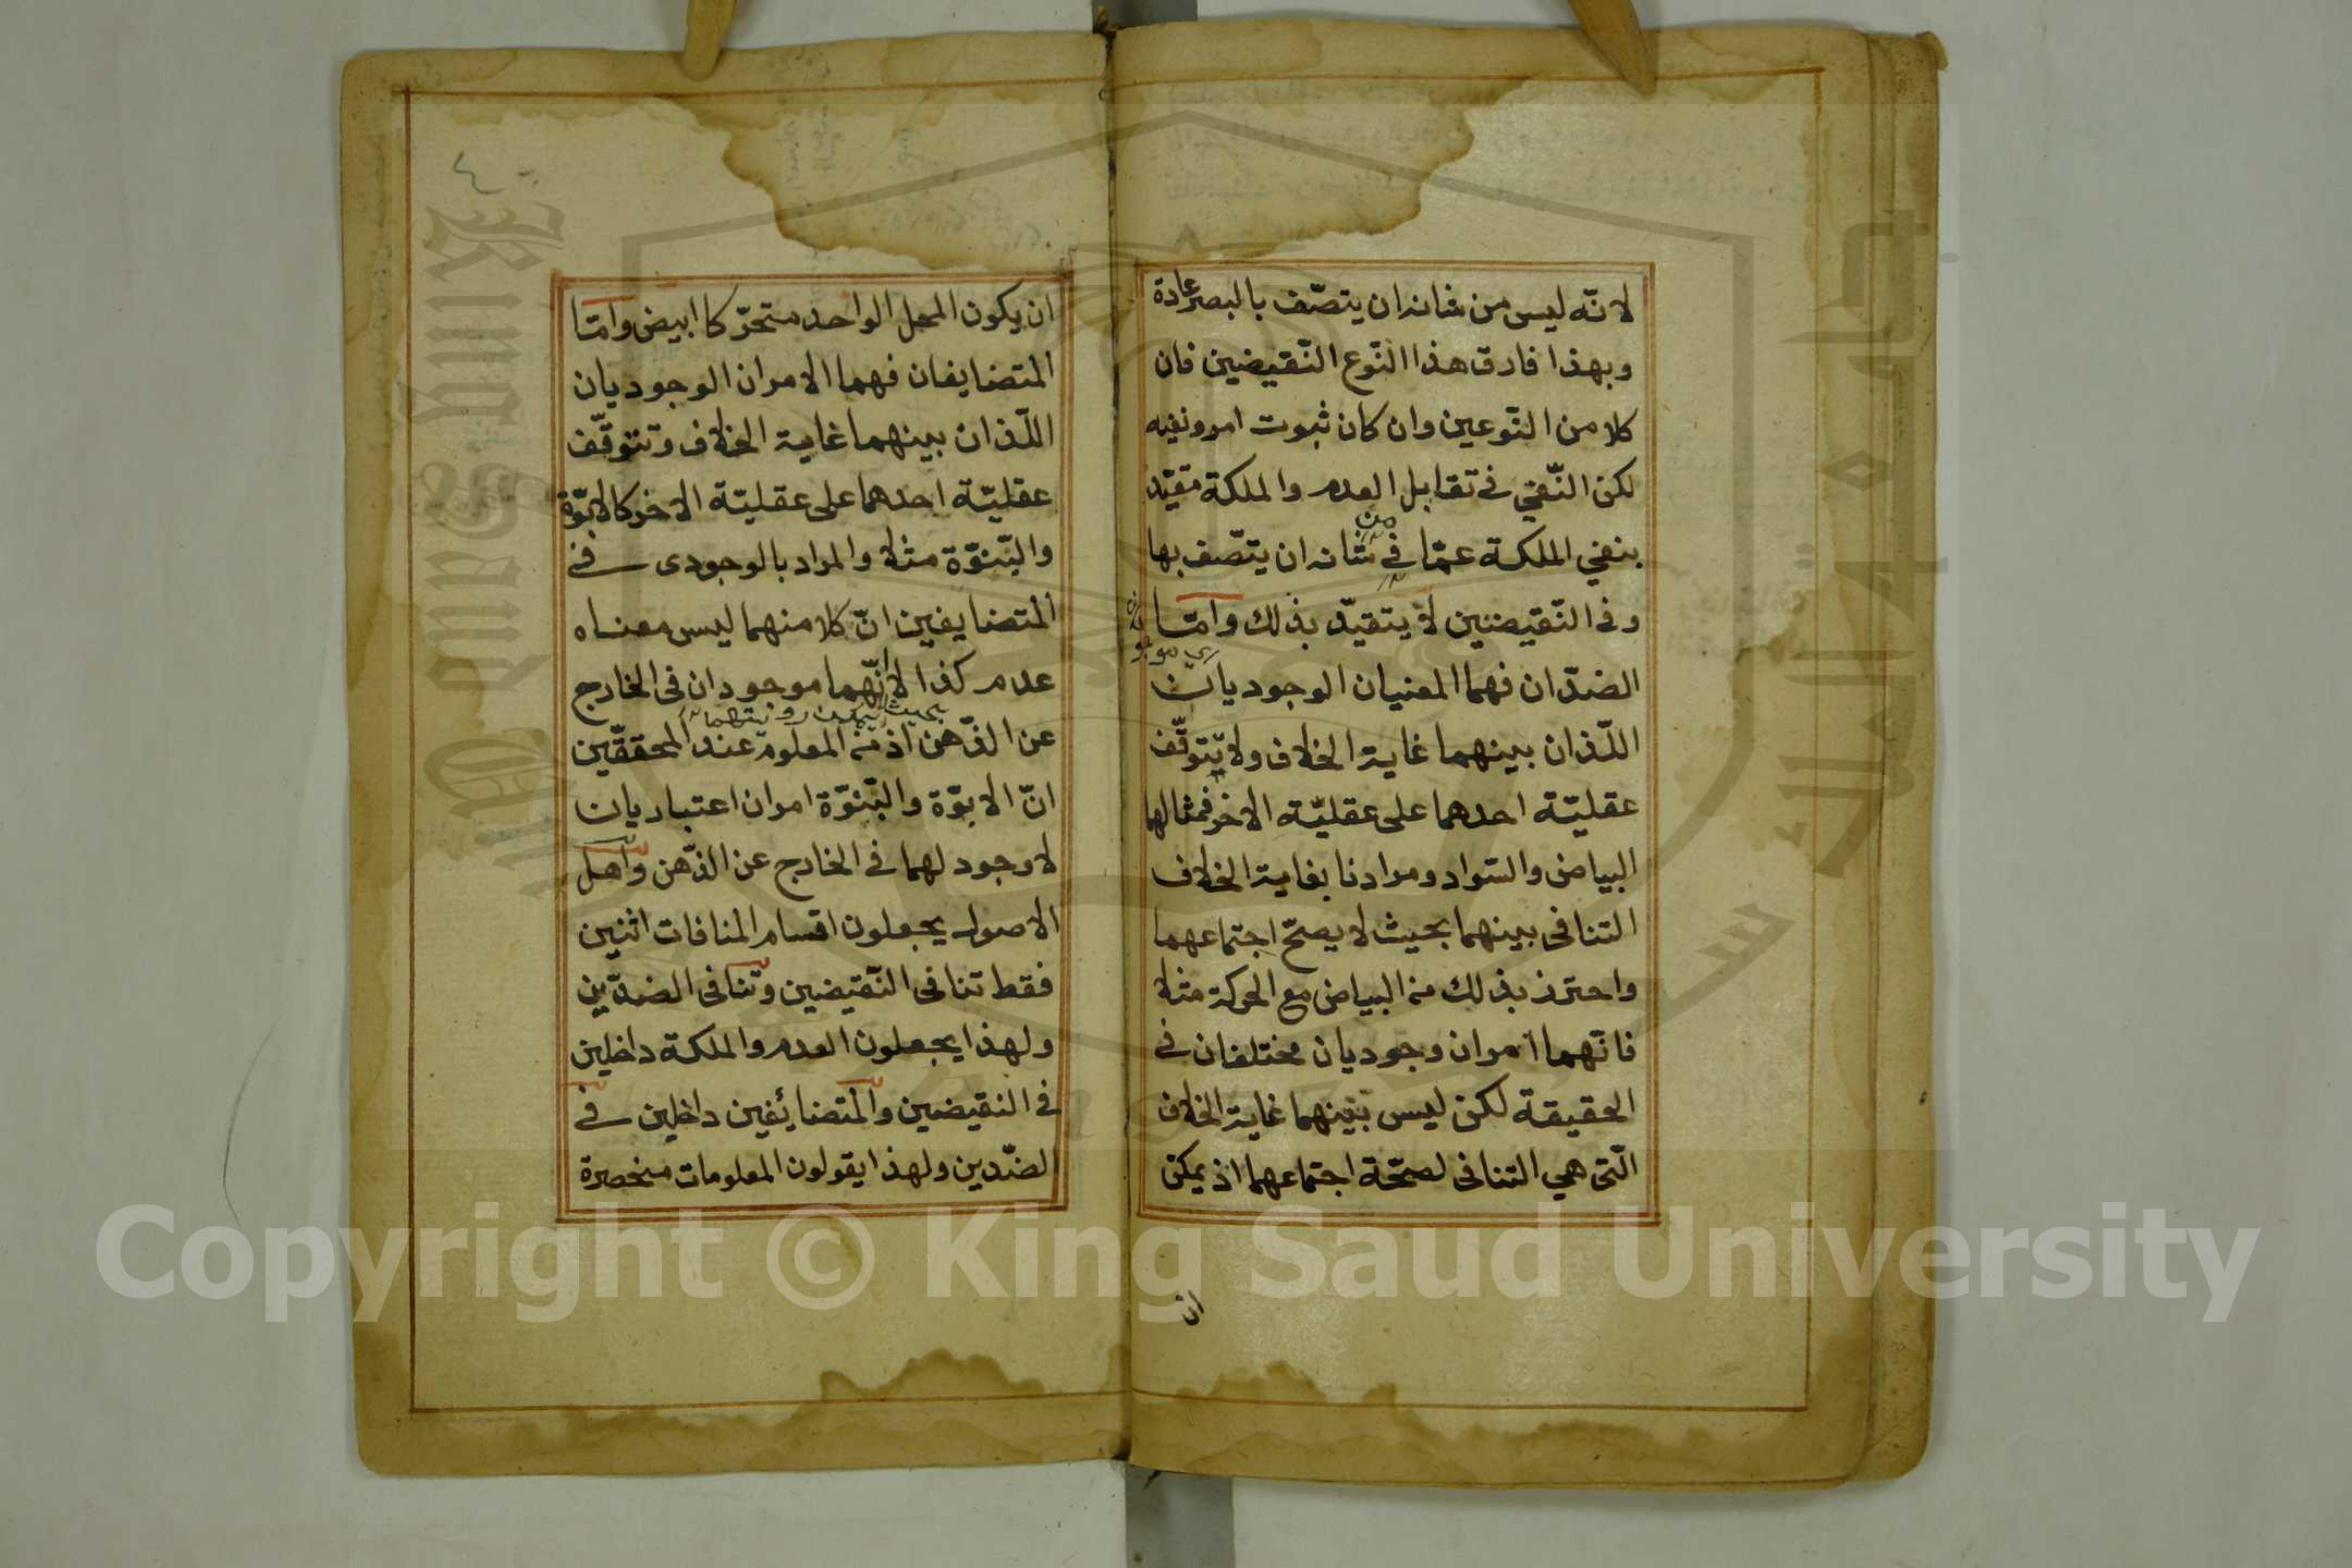 لانّه ليس من شانه ان يتصّف بالبصر عادة
وبهذا فارق هذا النّوع النّقيضين فان
كلا من النّوعين وان كان ثبوت امر ونفيه
لكن النّفي في تقابل العدم والملكة مقيّد
من
بنفي الملكة عمّا في شانه ان يتصّف بها
وفي النّقيضين لا يتقيّد بذلك وامّا
الضدّان فهما المعنيان الوجوديان
اللّذان بينهما غاية الخلاف ولا يتوقّف
عقليّة احدهما على عقليّة الاخر فمثالهما
البياض والسّواد ومرادنا بغاية الخلاف
التنافى بينهما بحيث لا يصحّ اجتماعهما
واحترز بذلك من البياض مع الحركة مثلا
فانّهما امران وجوديان مختلفان في
الحقيقة لكن ليس بينهما غاية الخلاف
الّتى هي التنافى لصحّة اجتماعهما اذ يمكن
ان
ان يكون المحل الواحد متحرّكا ابيض وامّا
المتضايفان فهما الامران الوجوديان
اللّذان بينهما غاية الخلاف وتتوقّف
عقليّة احدهما على عقليّة الاخر كالابوّة
والبّنوّة مثلا والمراد بالوجودى في
المتضايفين انّ كلا منهما ليس معناه
عدم كذا لا انّهما موجودان فى الخارج
بحيث يمكن رؤيتهما
عن الذّهن اذ من المعلوم عند المحققّين
انّ الابوّة والبّنوّة امران اعتباريان
لا وجود لهما في الخارج عن الذّهن واهل
الاصول يجعلون اقسام المنافات اثنين
فقط تنافى النّقيضين وتنافى الضدّين
ولهذا يجعلون العدم والملكة داخلين
في النقيضين والمتضائفين داخلين في
الضدّين ولهذا يقولون المعلومات منحصرة
King Saud University
Copyright © King Saud University